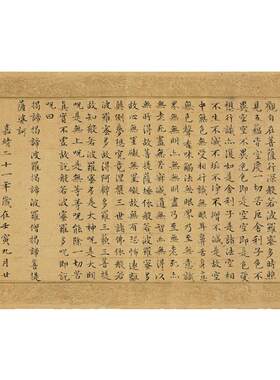 觀自在菩薩行深般若波羅蜜多時照
見五蘊皆空度一切苦厄舍利子色不
異空空不異色色即是空空即是色受
想行識亦復如是舍利子是諸法空相
不生不滅不垢不淨不增不減是故空
中無色無受想行識無眼耳鼻舌身意
無色聲香味觸法無眼界乃至無意識
界無無明亦無無明盡乃至無老死亦
無老死盡無苦集滅道無智亦無得以
無所得故菩提薩埵依般若波羅蜜多
故心無罣礙無罣礙故無有恐怖遠離
顛倒夢想究竟涅槃三世諸佛依般若
波羅蜜多故得阿耨多羅三藐三菩提
故知般若波羅蜜多是大神呪是大明
呪是無上呪是無等等呪能除一切苦
真實不虛故說般若波羅蜜多呪即說
呪曰
揭諦揭諦波羅揭諦波羅僧揭諦菩提
薩婆訶
嘉靖二十一年歲在壬寅九月廿